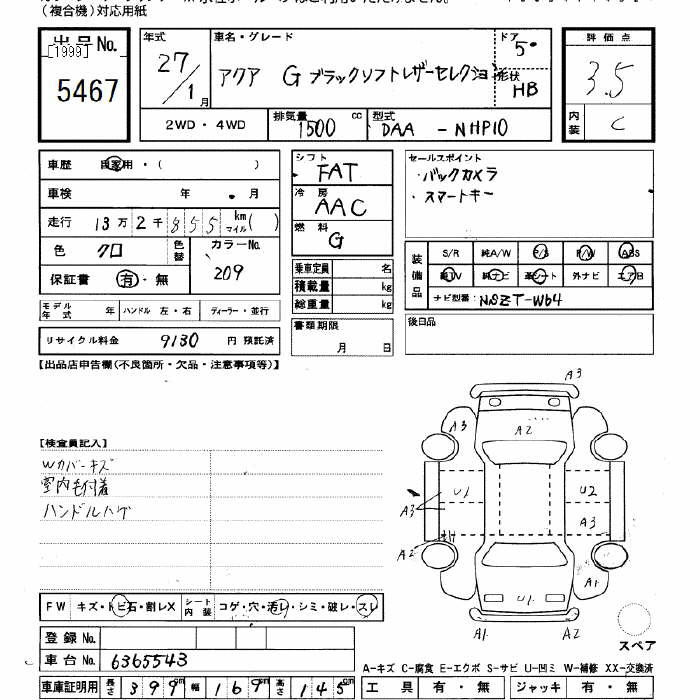 (複合機)対応用紙
出品No.
[1999]
5467
年式
27/1月
車名・グレード
アクア G ブラックソフトレザーセレクション
ドア 5
形状 HB
2WD・4WD
排気量 1500 cc
型式 DAA - NHP10
評価点
3.5
内装 C
車歴 自家用・( )
車検 年 月
走行 13万2千855 km マイル( )
色 クロ
色替
カラーNo. 209
保証書 有・無
モデル年式 年 ハンドル 左・右 ディーラー・並行
リサイクル料金 9130 円 預託済
シフト FAT
冷房 AAC
燃料 G
乗車定員 名
積載量 kg
総重量 kg
書類期限
月 日
セールスポイント
・バックカメラ
・スマートキー
装備品
S/R 純A/W P/S P/W ABS
純TV 純ナビ 革シート 外ナビ エアB
ナビ型番: NSZT-W64
後日品
【出品店申告欄(不良箇所・欠品・注意事項等)】
【検査員記入】
Wカバーキズ
室内毛付着
ハンドルハゲ
A3
A3
A2
U1
U2
A3
A3
A2
A1
U1
A1
A2
スペア
FW キズ・トビ石・割レX
シート内装 コゲ・穴・汚レ・シミ・破レ・スレ
登録No.
車台No. 6365543
車庫証明用 長さ 399cm 幅 169cm 高さ 145cm
A-キズ C-腐食 E-エクボ S-サビ U-凹ミ W-補修 XX-交換済
工具 有・無 ジャッキ 有・無